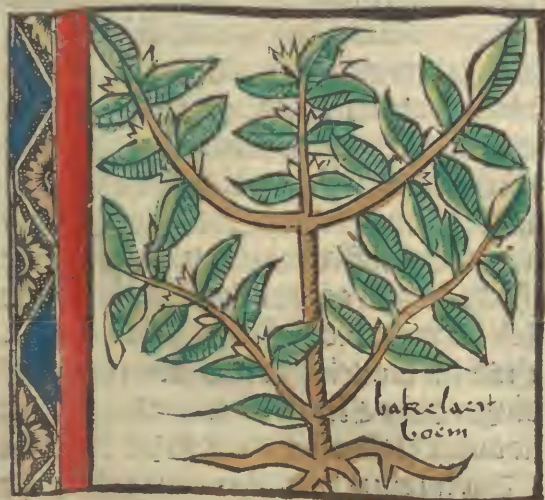 bakelaer
boem